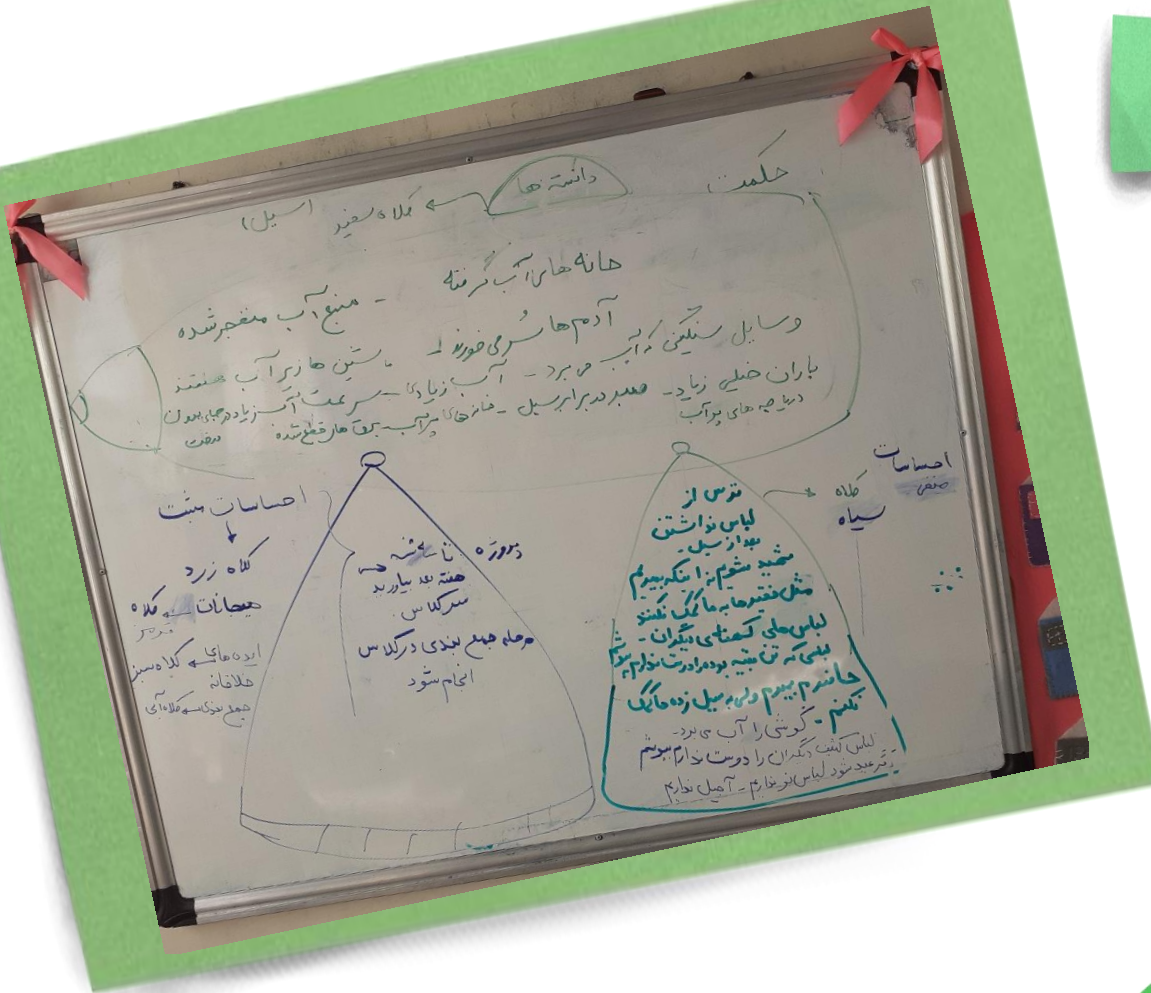 حکمت
دانسته ها
کلاه سفید
(سیل)
خانه های آب گرفته
آدم ها سُر می خورند - منبع آب منفجر شده
وسایل سنگین که آب می برد - آب زیادی - ماشین ها زیر آب هستند
باران خیلی زیاد - صبر در برابر سیل - سرعت آب زیاد در جای بدون درخت
دریاچه های پر آب - برق های قطع شده
احساسات منفی
کلاه سیاه
ترس از
لباس نداشتن
بعد از سیل -
شهید شویم نه اینکه بمیریم
مثل فقیرها به ما کمک نکنند
لباس های کهنه ی دیگران -
لباسی که تن بقیه بوده را دوست ندارم بپوشم
حاضرم بمیرم ولی به سیل زده ها کمک
نکنم - گوشی را آب می برد -
لباس کثیف دیگران را دوست ندارم بپوشم
عید شود لباس نو نداریم - آجیل نداریم
احساسات مثبت
کلاه زرد
هیجانات کلاه
قرمز
ایده های کلاه سبز
خلاقانه
جمع بندی کلاه آبی
دیروزه تا سه شنبه
هفته بعد بیاورید
سر کلاس
مرحله جمع بندی در کلاس
انجام شود